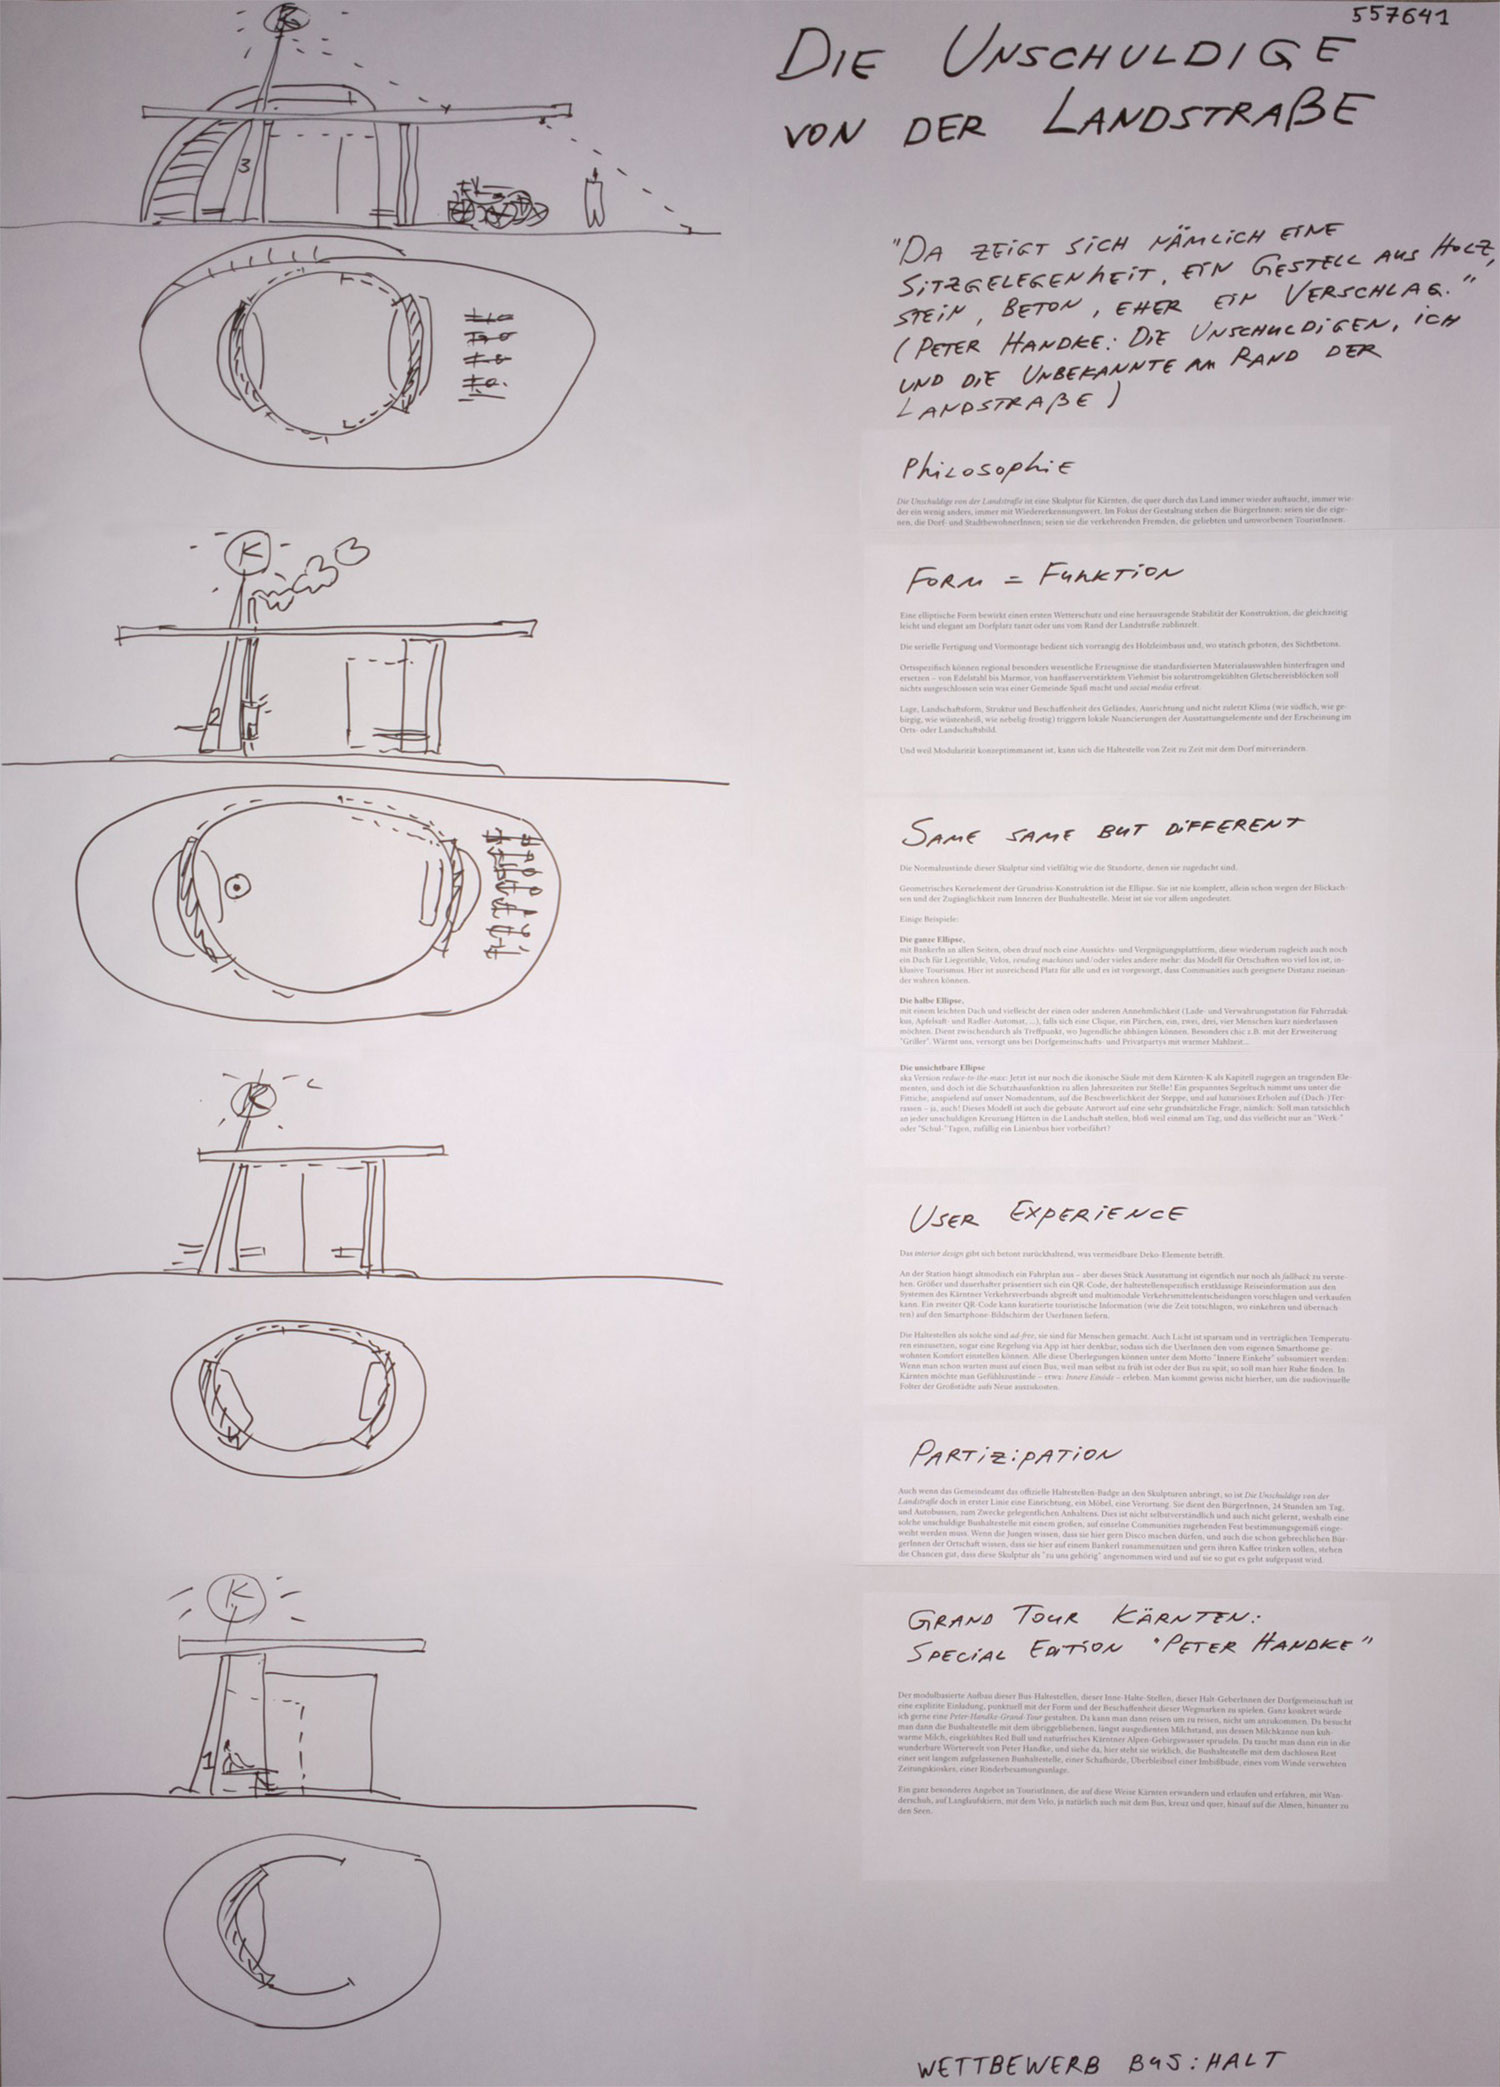 557641
DIE UNSCHULDIGE
VON DER LANDSTRAßE
"DA ZEIGT SICH NÄMLICH EINE
SITZGELEGENHEIT, EIN GESTELL AUS HOLZ,
STEIN, BETON, EHER EIN VERSCHLAG."
(PETER HANDKE: DIE UNSCHULDIGEN, ICH
UND DIE UNBEKANNTE AM RAND DER
LANDSTRAßE)
PHILOSOPHIE
Die Unschuldige von der Landstraße ist eine Skulptur für Kärnten, die quer durch das Land immer wieder auftaucht, immer wie-
der ein wenig anders, immer mit Wiedererkennungswert. Im Fokus der Gestaltung stehen die BürgerInnen: seien sie die eige-
nen, die Dorf- und StadtbewohnerInnen; seien sie die verkehrenden Fremden, die geliebten und umworbenen TouristInnen.
FORM = FUNKTION
Eine elliptische Form bewirkt einen ersten Wetterschutz und eine herausragende Stabilität der Konstruktion, die gleichzeitig
leicht und elegant am Dorfplatz tanzt oder uns vom Rand der Landstraße zublinzelt.
Die serielle Fertigung und Vormontage bedient sich vorrangig des Holzleimbaus und, wo statisch geboten, des Sichtbetons.
Ortsspezifisch können regional besonders wesentliche Erzeugnisse die standardisierten Materialauswahlen hinterfragen und
ersetzen – von Edelstahl bis Marmor, von hanffaserverstärktem Viehmist bis solarstromgekühlten Gletschereisblöcken soll
nichts ausgeschlossen sein was einer Gemeinde Spaß macht und social media erfreut.
Lage, Landschaftsform, Struktur und Beschaffenheit des Geländes, Ausrichtung und nicht zuletzt Klima (wie südlich, wie ge-
birgig, wie wüstenheiß, wie nebelig-frostig) triggern lokale Nuancierungen der Ausstattungselemente und der Erscheinung im
Orts- oder Landschaftsbild.
Und weil Modularität konzeptimmanent ist, kann sich die Haltestelle von Zeit zu Zeit mit dem Dorf mitverändern.
SAME SAME BUT DIFFERENT
Die Normalzustände dieser Skulptur sind vielfältig wie die Standorte, denen sie zugedacht sind.
Geometrisches Kernelement der Grundriss-Konstruktion ist die Ellipse. Sie ist nie komplett, allein schon wegen der Blickach-
sen und der Zugänglichkeit zum Inneren der Bushaltestelle. Meist ist sie vor allem angedeutet.
Einige Beispiele:
Die ganze Ellipse,
mit Bankerln an allen Seiten, oben drauf noch eine Aussichts- und Vergnügungsplattform, diese wiederum zugleich auch noch
ein Dach für Liegestühle, Velos, vending machines und/oder vieles andere mehr: das Modell für Ortschaften wo viel los ist, in-
klusive Tourismus. Hier ist ausreichend Platz für alle und es ist vorgesorgt, dass Communities auch geeignete Distanz zueinan-
der wahren können.
Die halbe Ellipse,
mit einem leichten Dach und vielleicht der einen oder anderen Annehmlichkeit (Lade- und Verwahrungsstation für Fahrradak-
kus, Apfelsaft- und Radler-Automat, ...), falls sich eine Clique, ein Pärchen, ein, zwei, drei, vier Menschen kurz niederlassen
möchten. Dient zwischendurch als Treffpunkt, wo Jugendliche abhängen können. Besonders chic z.B. mit der Erweiterung
"Griller". Wärmt uns, versorgt uns bei Dorfgemeinschafts- und Privatpartys mit warmer Mahlzeit...
Die unsichtbare Ellipse
aka Version reduce-to-the-max: Jetzt ist nur noch die ikonische Säule mit dem Kärnten-K als Kapitell zugegen an tragenden Ele-
menten, und doch ist die Schutzhausfunktion zu allen Jahreszeiten zur Stelle! Ein gespanntes Segeltuch nimmt uns unter die
Fittiche, anspielend auf unser Nomadentum, auf die Beschwerlichkeit der Steppe, und auf luxuriöses Erholen auf (Dach-)Ter-
rassen – ja, auch! Dieses Modell ist auch die gebaute Antwort auf eine sehr grundsätzliche Frage, nämlich: Soll man tatsächlich
an jeder unschuldigen Kreuzung Hütten in die Landschaft stellen, bloß weil einmal am Tag, und das vielleicht nur an "Werk-"
oder "Schul-"Tagen, zufällig ein Linienbus hier vorbeifährt?
USER EXPERIENCE
Das interior design gibt sich betont zurückhaltend, was vermeidbare Deko-Elemente betrifft.
An der Station hängt altmodisch ein Fahrplan aus – aber dieses Stück Ausstattung ist eigentlich nur noch als fallback zu verste-
hen. Größer und dauerhafter präsentiert sich ein QR-Code, der haltestellenspezifisch erstklassige Reiseinformation aus den
Systemen des Kärntner Verkehrsverbunds abgreift und multimodale Verkehrsmittelentscheidungen vorschlagen und verkaufen
kann. Ein zweiter QR-Code kann kuratierte touristische Information (wie die Zeit totschlagen, wo einkehren und übernach-
ten) auf den Smartphone-Bildschirm der UserInnen liefern.
Die Haltestellen als solche sind ad-free, sie sind für Menschen gemacht. Auch Licht ist sparsam und in verträglichen Temperatu-
ren einzusetzen, sogar eine Regelung via App ist hier denkbar, sodass sich die UserInnen den vom eigenen Smarthome ge-
wohnten Komfort einstellen können. Alle diese Überlegungen können unter dem Motto "Innere Einkehr" subsumiert werden:
Wenn man schon warten muss auf einen Bus, weil man selbst zu früh ist oder der Bus zu spät, so soll man hier Ruhe finden. In
Kärnten möchte man Gefühlszustände – etwa: Innere Einöde – erleben. Man kommt gewiss nicht hierher, um die audiovisuelle
Folter der Großstädte aufs Neue auszukosten.
PARTIZIPATION
Auch wenn das Gemeindeamt das offizielle Haltestellen-Badge an den Skulpturen anbringt, so ist Die Unschuldige von der
Landstraße doch in erster Linie eine Einrichtung, ein Möbel, eine Verortung. Sie dient den BürgerInnen, 24 Stunden am Tag,
und Autobussen, zum Zwecke gelegentlichen Anhaltens. Dies ist nicht selbstverständlich und auch nicht gelernt, weshalb eine
solche unschuldige Bushaltestelle mit einem großen, auf einzelne Communities zugehenden Fest bestimmungsgemäß einge-
weiht werden muss. Wenn die Jungen wissen, dass sie hier gern Disco machen dürfen, und auch die schon gebrechlichen Bür-
gerInnen der Ortschaft wissen, dass sie hier auf einem Bankerl zusammensitzen und gern ihren Kaffee trinken sollen, stehen
die Chancen gut, dass diese Skulptur als "zu uns gehörig" angenommen wird und auf sie so gut es geht aufgepasst wird.
GRAND TOUR KÄRNTEN:
SPECIAL EDITION "PETER HANDKE"
Der modulbasierte Aufbau dieser Bus-Haltestellen, dieser Inne-Halte-Stellen, dieser Halt-GeberInnen der Dorfgemeinschaft ist
eine explizite Einladung, punktuell mit der Form und der Beschaffenheit dieser Wegmarken zu spielen. Ganz konkret würde
ich gerne eine Peter-Handke-Grand-Tour gestalten. Da kann man dann reisen um zu reisen, nicht um anzukommen. Da besucht
man dann die Bushaltestelle mit dem übriggebliebenen, längst ausgedienten Milchstand, aus dessen Milchkanne nun kuh-
warme Milch, eisgekühltes Red Bull und naturfrisches Kärntner Alpen-Gebirgswasser sprudeln. Da taucht man dann ein in die
wunderbare Wörterwelt von Peter Handke, und siehe da, hier steht sie wirklich, die Bushaltestelle mit dem dachlosen Rest
einer seit langem aufgelassenen Bushaltestelle, einer Schafhürde, Überbleibsel einer Imbißbude, eines vom Winde verwehten
Zeitungskioskes, einer Rinderbesamungsanlage.
Ein ganz besonderes Angebot an TouristInnen, die auf diese Weise Kärnten erwandern und erlaufen und erfahren, mit Wan-
derschuh, auf Langlaufskiern, mit dem Velo, ja natürlich auch mit dem Bus, kreuz und quer, hinauf auf die Almen, hinunter zu
den Seen.
WETTBEWERB BUS:HALT
K
3
K
2
K
K
1